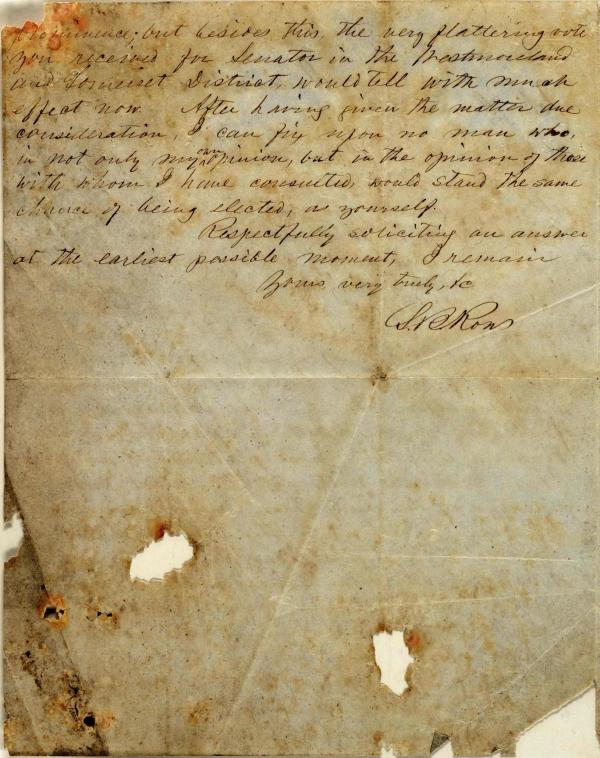 prominence; but besides this, the very flattering vote
you received for Senator in the Westmoreland
and Somerset District, would tell with much
effect now. After having given the matter due
consideration, I can fix upon no man who,
in not only my own opinion, but in the opinion of those
with whom I have consulted, would stand the same
chance of being elected, as yourself.
Respectfully soliciting an answer
at the earliest possible moment, I remain
Yours very truly, &c